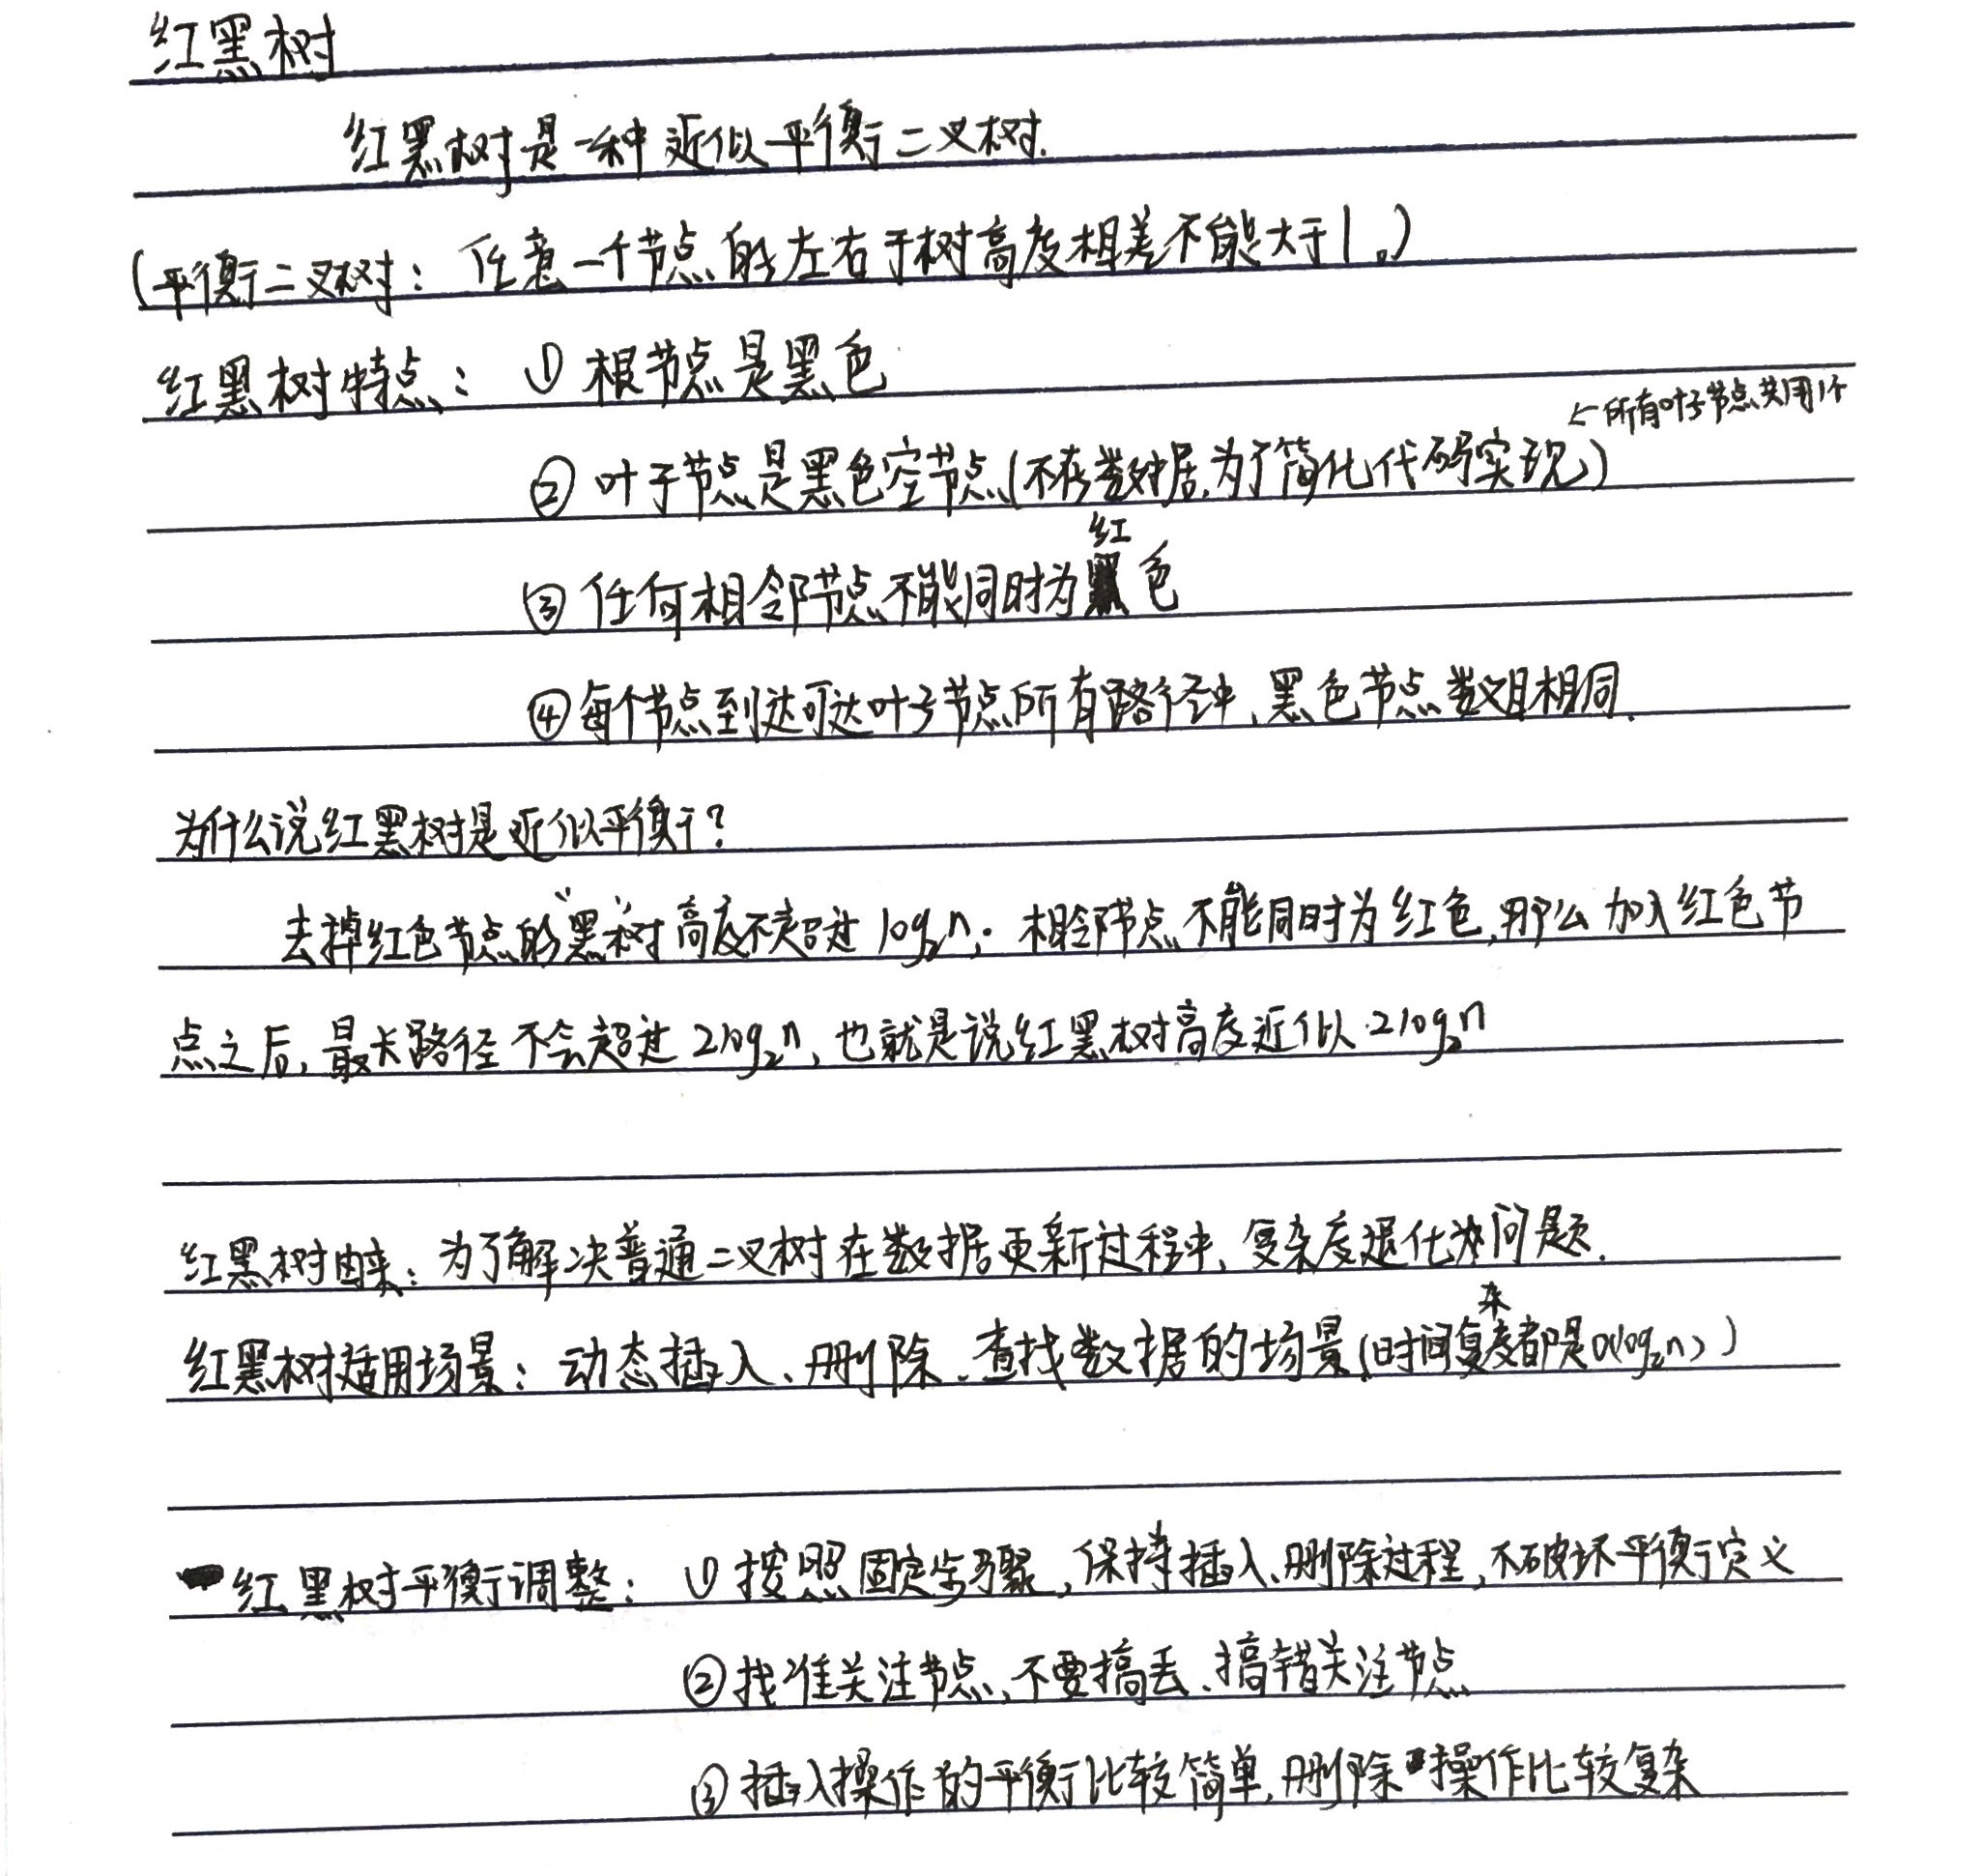 红黑树
红黑树是一种近似平衡二叉树.
(平衡二叉树：任意一个节点的左右子树高度相差不能大于1。)
红黑树特点：① 根节点是黑色
←所有叶子节点共用1个
② 叶子节点是黑色空节点(不存数据,为了简化代码实现)
红
③ 任何相邻节点不能同时为黑色
④ 每个节点到达可达叶子节点所有路径中,黑色节点数目相同.
为什么说红黑树是近似平衡?
去掉红色节点的“黑树”高度不超过 log₂n; 相邻节点不能同时为红色,那么加入红色节
点之后,最长路径不会超过 2log₂n, 也就是说红黑树高度近似 2log₂n
红黑树由来：为了解决普通二叉树在数据更新过程中,复杂度退化的问题.
杂
红黑树适用场景：动态插入、删除、查找数据的场景(时间复度都是O(log₂n))
红黑树平衡调整：① 按照固定步骤,保持插入、删除过程,不破坏平衡定义
② 找准关注节点,不要搞丢、搞错关注节点
③ 插入操作的平衡比较简单,删除操作比较复杂